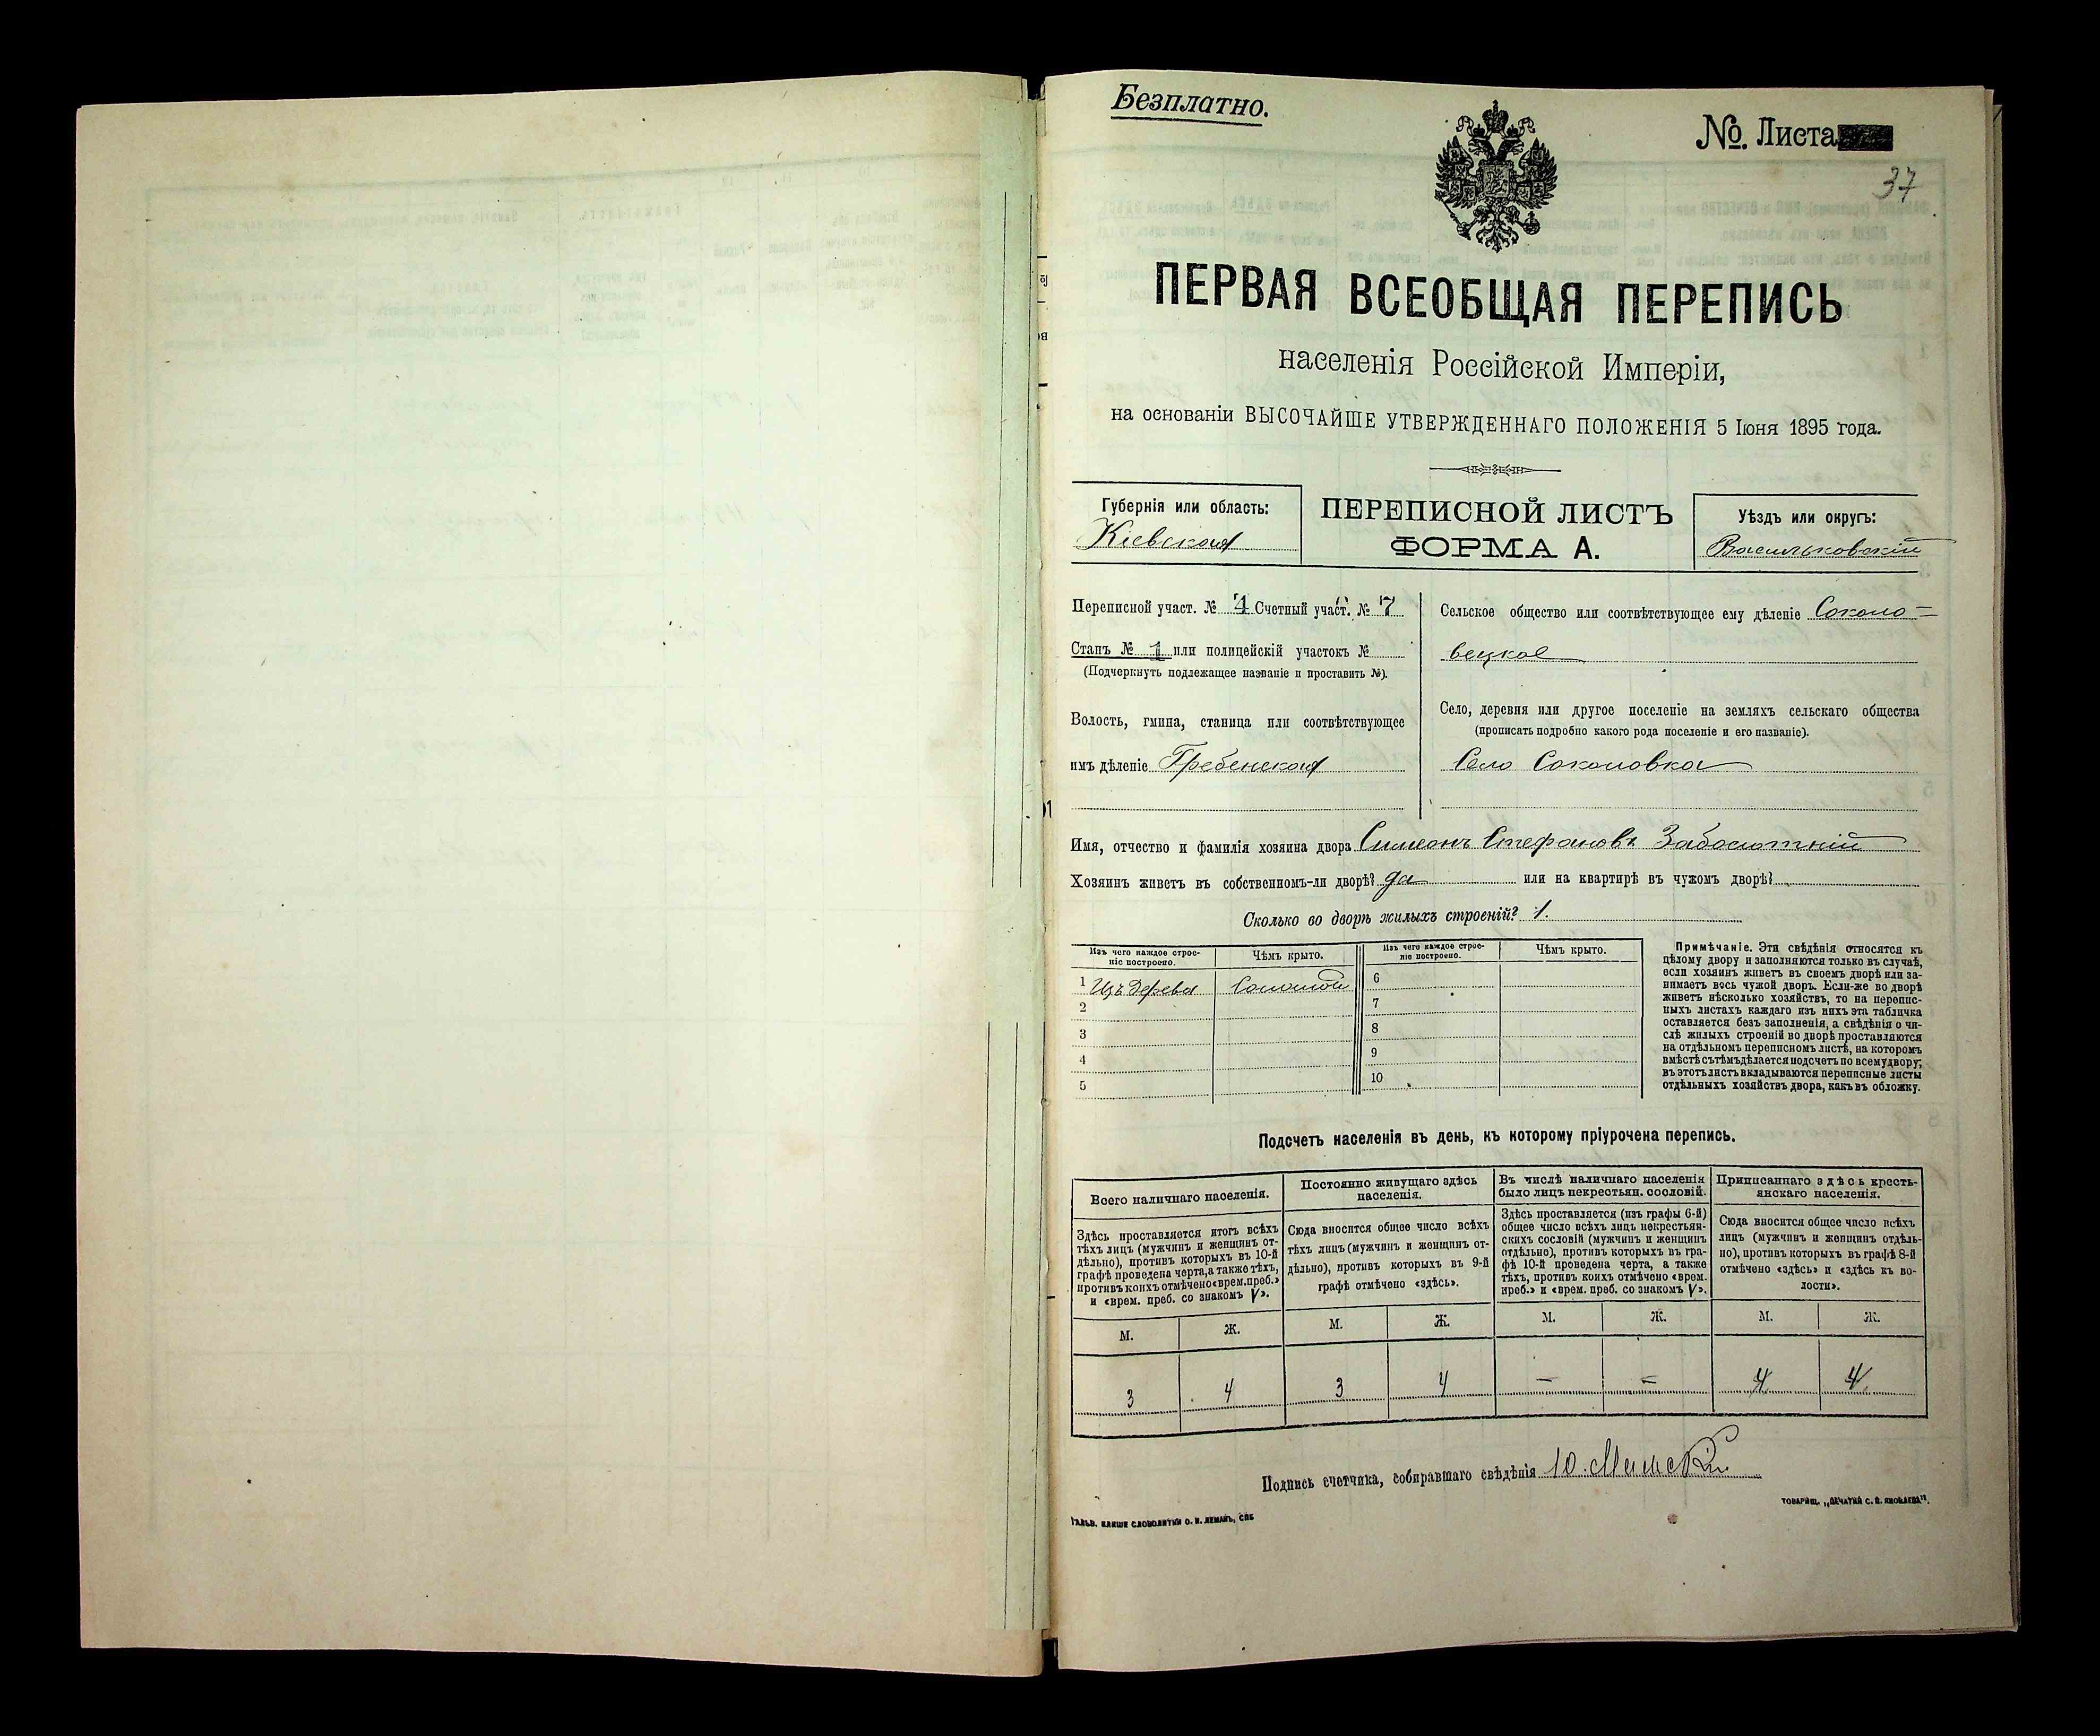 Безплатно.
№. Листа
37
ПЕРВАЯ ВСЕОБЩАЯ ПЕРЕПИСЬ
населенія Россійской Имперіи,
на основаніи ВЫСОЧАЙШЕ УТВЕРЖДЕННАГО ПОЛОЖЕНІЯ 5 Іюня 1895 года.
Губернія или область:
Кіевская
ПЕРЕПИСНОЙ ЛИСТЪ
ФОРМА А.
Уѣздъ или округъ:
Васильковскій
Переписной участ. № 4 Счетный участ. № 7
Станъ № 1 или полицейскій участокъ №
(Подчеркнуть подлежащее названіе и проставить №).
Волость, гмина, станица или соотвѣтствующее
имъ дѣленіе Гребенская
Сельское общество или соотвѣтствующее ему дѣленіе Соколо-
вецкое
Село, деревня или другое поселеніе на земляхъ сельскаго общества
(прописать подробно какого рода поселеніе и его названіе).
Село Соколовка
Имя, отчество и фамилія хозяина двора Симеонъ Стефановъ Заболотній
Хозяинъ живетъ въ собственномъ-ли дворѣ? да или на квартирѣ въ чужомъ дворѣ?
Сколько во дворѣ жилыхъ строеній? 1.
Изъ чего каждое строе-
ніе построено.
Чѣмъ крыто.
Изъ чего каждое строе-
ніе построено.
Чѣмъ крыто.
1 Изъ дерева Соломой
2
3
4
5
6
7
8
9
10
Примѣчаніе. Эти свѣдѣнія относятся къ
цѣлому двору и заполняются только въ случаѣ,
если хозяинъ живетъ въ своемъ дворѣ или за-
нимаетъ весь чужой дворъ. Если-же во дворѣ
живетъ нѣсколько хозяйствъ, то на перепис-
ныхъ листахъ каждаго изъ нихъ эта табличка
оставляется безъ заполненія, а свѣдѣнія о чи-
слѣ жилыхъ строеній во дворѣ проставляются
на отдѣльномъ переписномъ листѣ, на которомъ
вмѣстѣ съ тѣмъ дѣлается подсчетъ по всему двору;
въ этотъ листъ вкладываются переписные листы
отдѣльныхъ хозяйствъ двора, какъ въ обложку.
Подсчетъ населенія въ день, къ которому пріурочена перепись.
Всего наличнаго населенія.
Постоянно живущаго здѣсь
населенія.
Въ числѣ наличнаго населенія
было лицъ некрестьян. сословій.
Приписаннаго здѣсь кресть-
янскаго населенія.
Здѣсь проставляется итогъ всѣхъ
тѣхъ лицъ (мужчинъ и женщинъ от-
дѣльно), противъ которыхъ въ 10-й
графѣ проведена черта, а также тѣхъ,
противъ коихъ отмѣчено «врем. преб.»
и «врем. преб. со знакомъ V».
Сюда вносится общее число всѣхъ
тѣхъ лицъ (мужчинъ и женщинъ от-
дѣльно), противъ которыхъ въ 9-й
графѣ отмѣчено «здѣсь».
Здѣсь проставляется (изъ графы 6-й)
общее число всѣхъ лицъ некрестьян-
скихъ сословій (мужчинъ и женщинъ
отдѣльно), противъ которыхъ въ гра-
фѣ 10-й проведена черта, а также
тѣхъ, противъ коихъ отмѣчено «врем.
преб.» и «врем. преб. со знакомъ V».
Сюда вносится общее число всѣхъ
лицъ (мужчинъ и женщинъ отдѣль-
но), противъ которыхъ въ графѣ 8-й
отмѣчено «здѣсь» и «здѣсь къ во-
лости».
М. Ж. М. Ж. М. Ж. М. Ж.
3 4 3 4 — — 4 4
Подпись счетчика, собиравшаго свѣдѣнія
ГАЛЬВ. КЛИШЕ СЛОВОЛИТНИ О. И. ЛЕМАНЪ, СПБ
ТОВАРИЩ. „ПЕЧАТНЯ С. П. ЯКОВЛЕВА".